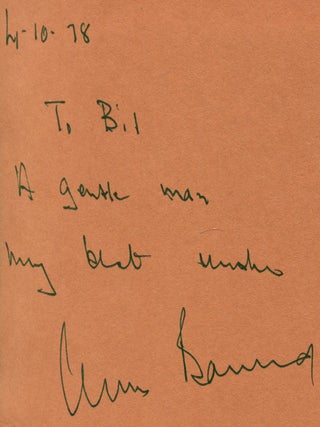 4-10-78
To Bil
A gentle man
my best wishes